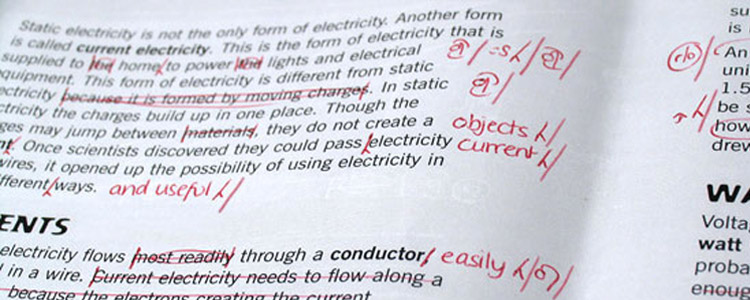 Static electricity is not the only form of electricity. Another form
is called current electricity. This is the form of electricity that is
supplied to the home to power the lights and electrical =s
equipment. This form of electricity is different from static
electricity because it is formed by moving charges. In static
electricity the charges build up in one place. Though the
ges may jump between materials, they do not create a objects
Once scientists discovered they could pass electricity current
wires, it opened up the possibility of using electricity in
fferent ways. and useful
ENTS
electricity flows most readily through a conductor easily
in a wire. Current electricity needs to flow along a
because the electrons creating the current
su
is
r/o An
uni
1.5
be s
how
drew
WA
Volta
watt
proba
enoug